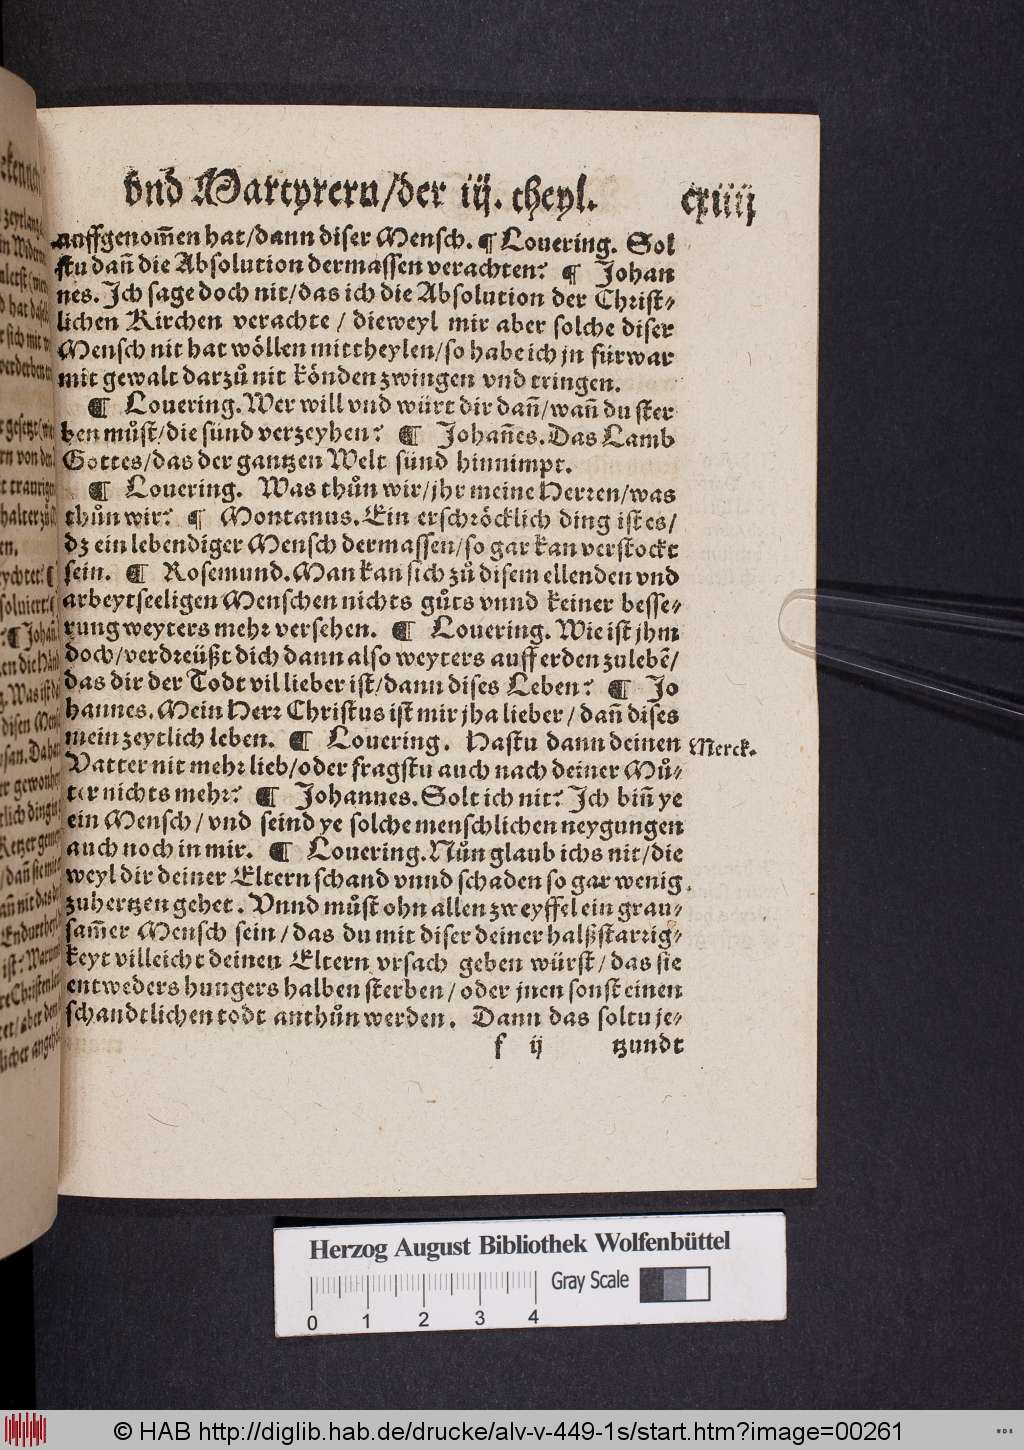 vnd Martyrern/der iij. theyl. cxiiij
auffgenom̃en hat/dann diser Mensch. ¶ Louering. Sol
stu dañ die Absolution dermassen verachten? ¶ Johan
nes. Ich sage doch nit/das ich die Absolution der Christ⸗
lichen Kirchen verachte / dieweyl mir aber solche diser
Mensch nit hat wöllen mittheylen/so habe ich jn fürwar
mit gewalt darzů nit könden zwingen vnd tringen.
¶ Louering. Wer will vnd würt dir dañ/wañ du ster
ben můst/die sünd verzeyhen? ¶ Johañes. Das Lamb
Gottes/das der gantzen Welt sünd hinnimpt.
¶ Louering. Was thůn wir/jhr meine Herren/was
thůn wir? ¶ Montanus. Ein erschröcklich ding ist es/
dz ein lebendiger Mensch dermassen/so gar kan verstockt
sein. ¶ Rosemund. Man kan sich zů disem ellenden vnd
arbeytseeligen Menschen nichts gůts vnnd keiner besse⸗
rung weyters mehr versehen. ¶ Louering. Wie ist jhm
doch/verdreüßt dich dann also weyters auff erden zulebẽ/
das dir der Todt vil lieber ist/dann dises Leben? ¶ Jo
hannes. Mein Herr Christus ist mir jha lieber / dañ dises
mein zeytlich leben. ¶ Louering. Hastu dann deinen Merck.
Vatter nit mehr lieb/oder fragstu auch nach deiner Mů⸗
ter nichts mehr? ¶ Johannes. Solt ich nit? Ich biñ ye
ein Mensch / vnd seind ye solche menschlichen neygungen
auch noch in mir. ¶ Louering. Nůn glaub ichs nit/die
weyl dir deiner Eltern schand vnnd schaden so gar wenig
zuhertzen gehet. Vnnd můst ohn allen zweyffel ein grau⸗
sam̃er Mensch sein / das du mit diser deiner halßstarrig⸗
keyt villeicht deinen Eltern vrsach geben würst / das sie
entweders hungers halben sterben / oder jnen sonst einen
schandtlichen todt anthůn werden. Dann das soltu je⸗
f ij tzundt
Herzog August Bibliothek Wolfenbüttel
Gray Scale
0 1 2 3 4
© HAB http://diglib.hab.de/drucke/alv-v-449-1s/start.htm?image=00261